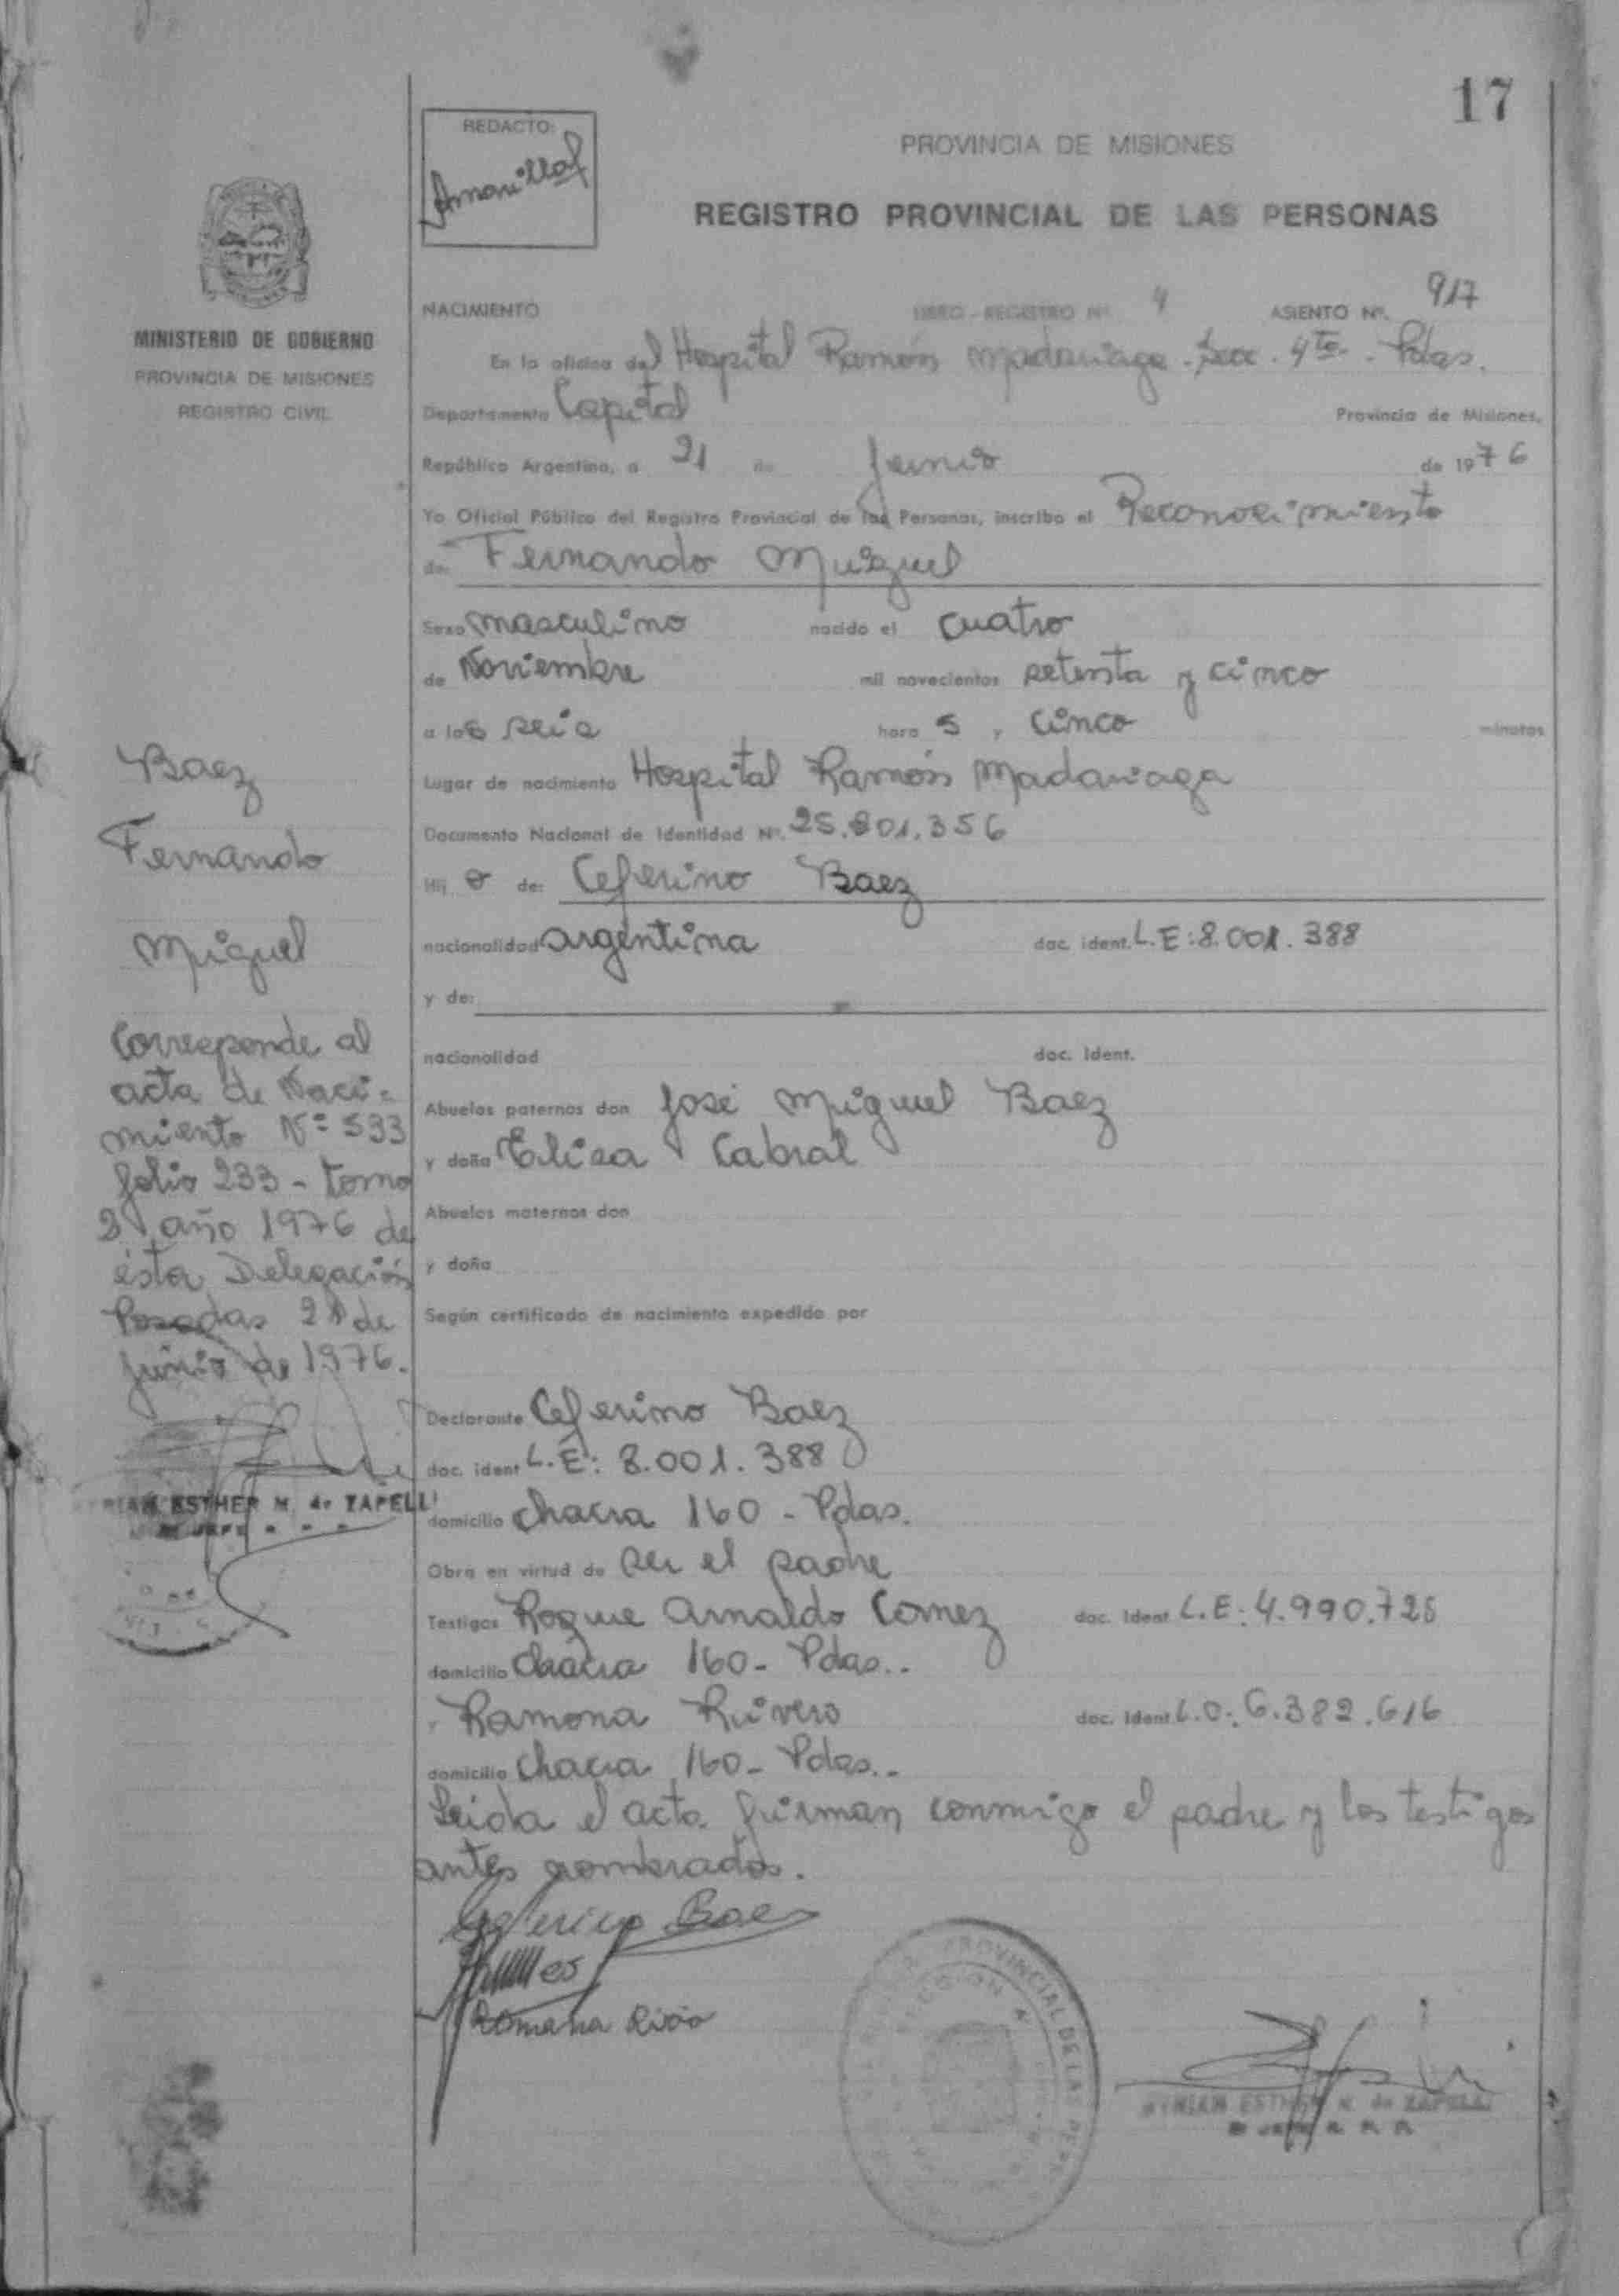 17
REDACTO:
PROVINCIA DE MISIONES
REGISTRO PROVINCIAL DE LAS PERSONAS
MINISTERIO DE GOBIERNO
PROVINCIA DE MISIONES
REGISTRO CIVIL
NACIMIENTO LIBRO - REGISTRO Nº 4 ASIENTO Nº. 917
En la oficina del Hospital Ramón Madariaga. Secc. 4ta. Pdas.
Departamento Capital Provincia de Misiones,
República Argentina, a 21 de Junio de 1976
Yo Oficial Público del Registro Provincial de las Personas, inscribo el Reconocimiento
de: Fernando Miguel
Sexo masculino nacido el cuatro
de Noviembre mil novecientos setenta y cinco
a las seis hora s y cinco minutos
Lugar de nacimiento Hospital Ramón Madariaga
Documento Nacional de Identidad Nº. 25.801.356
Hij o de: Ceferino Baez
nacionalidad argentina doc. ident. L.E: 8.001.388
y de:
nacionalidad doc. Ident.
Abuelos paternos don José Miguel Baez
y doña Elisa Cabral
Abuelos maternos don
y doña
Según certificado de nacimiento expedido por
Declarante Ceferino Baez
doc. ident L.E: 8.001.388
domicilio chacra 160 - Pdas.
Obra en virtud de ser el padre
Testigos Roque Arnaldo Comez doc. Ident L.E: 4.990.725
domicilio Chacra 160 - Pdas..
y Ramona Rivero doc. Ident L.C. 6.382.616
domicilio chacra 160 - Pdas..
Leida el acta firman conmigo el padre y los testigos
antes nombrados.
Baez
Fernando
Miguel
Corresponde al
acta de Naci-
miento Nº 533
folio 233 - tomo
2 año 1976 de
ésta Delegación
Posadas 21 de
junio de 1976.
ESTHER M. de ZAPELLI
Ceferino Baez
Romana
PROVINCIAL DE LAS
SECCION 4
MYRIAM ESTHER M. de ZAPELLI